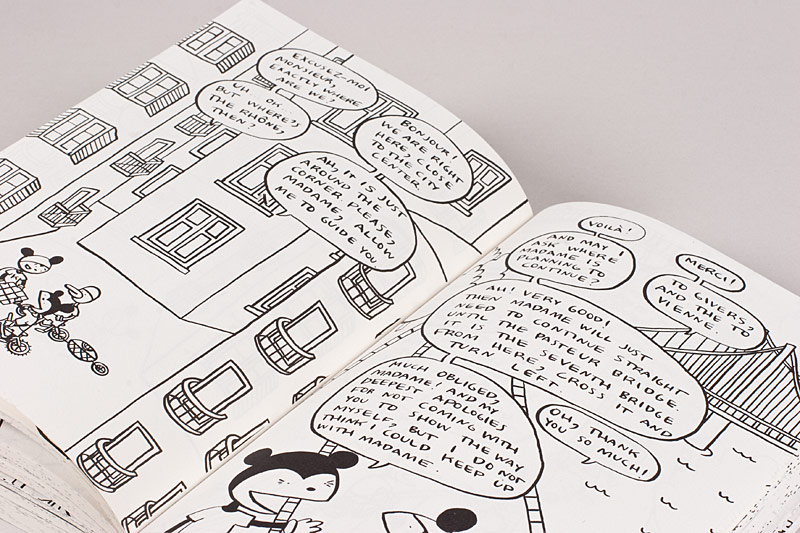 EXCUSEZ-MOI
MONSIEUR,
EXACTLY WHERE
ARE WE?
BONJOUR!
WE ARE RIGHT
HERE, CLOSE
TO THE CITY
CENTER.
UH OK...
BUT WHERE?
THE RHÔNE,
THEN?
AH IT IS JUST
AROUND THE
CORNER PLEASE,
MADAME, ALLOW
ME TO GUIDE YOU
VOILÀ!
AND MAY I
ASK WHERE
MADAME IS
PLANNING TO
CONTINUE?
MERCI!
TO GIVERS,
AND THE TO
VIENNE.
AH! VERY GOOD!
THEN MADAME WILL JUST
NEED TO CONTINUE STRAIGHT
UNTIL THE PASTEUR BRIDGE.
IT IS THE SEVENTH BRIDGE
FROM HERE, CROSS IT AND
TURN LEFT.
OH, THANK
YOU SO MUCH!
MUCH OBLIGED,
MADAME! AND MY
DEEPEST APOLOGIES
FOR NOT COMING WITH
YOU TO SHOW THE WAY
MYSELF, BUT I DO NOT
THINK I COULD KEEP UP
WITH MADAME.